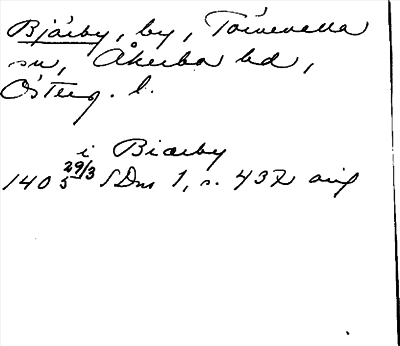 Bjärby, by, Törnevalla
sn, Åkerbo hd,
Österg. l.
i Biærby
1405 29/3 SDns 1, s. 432 orig